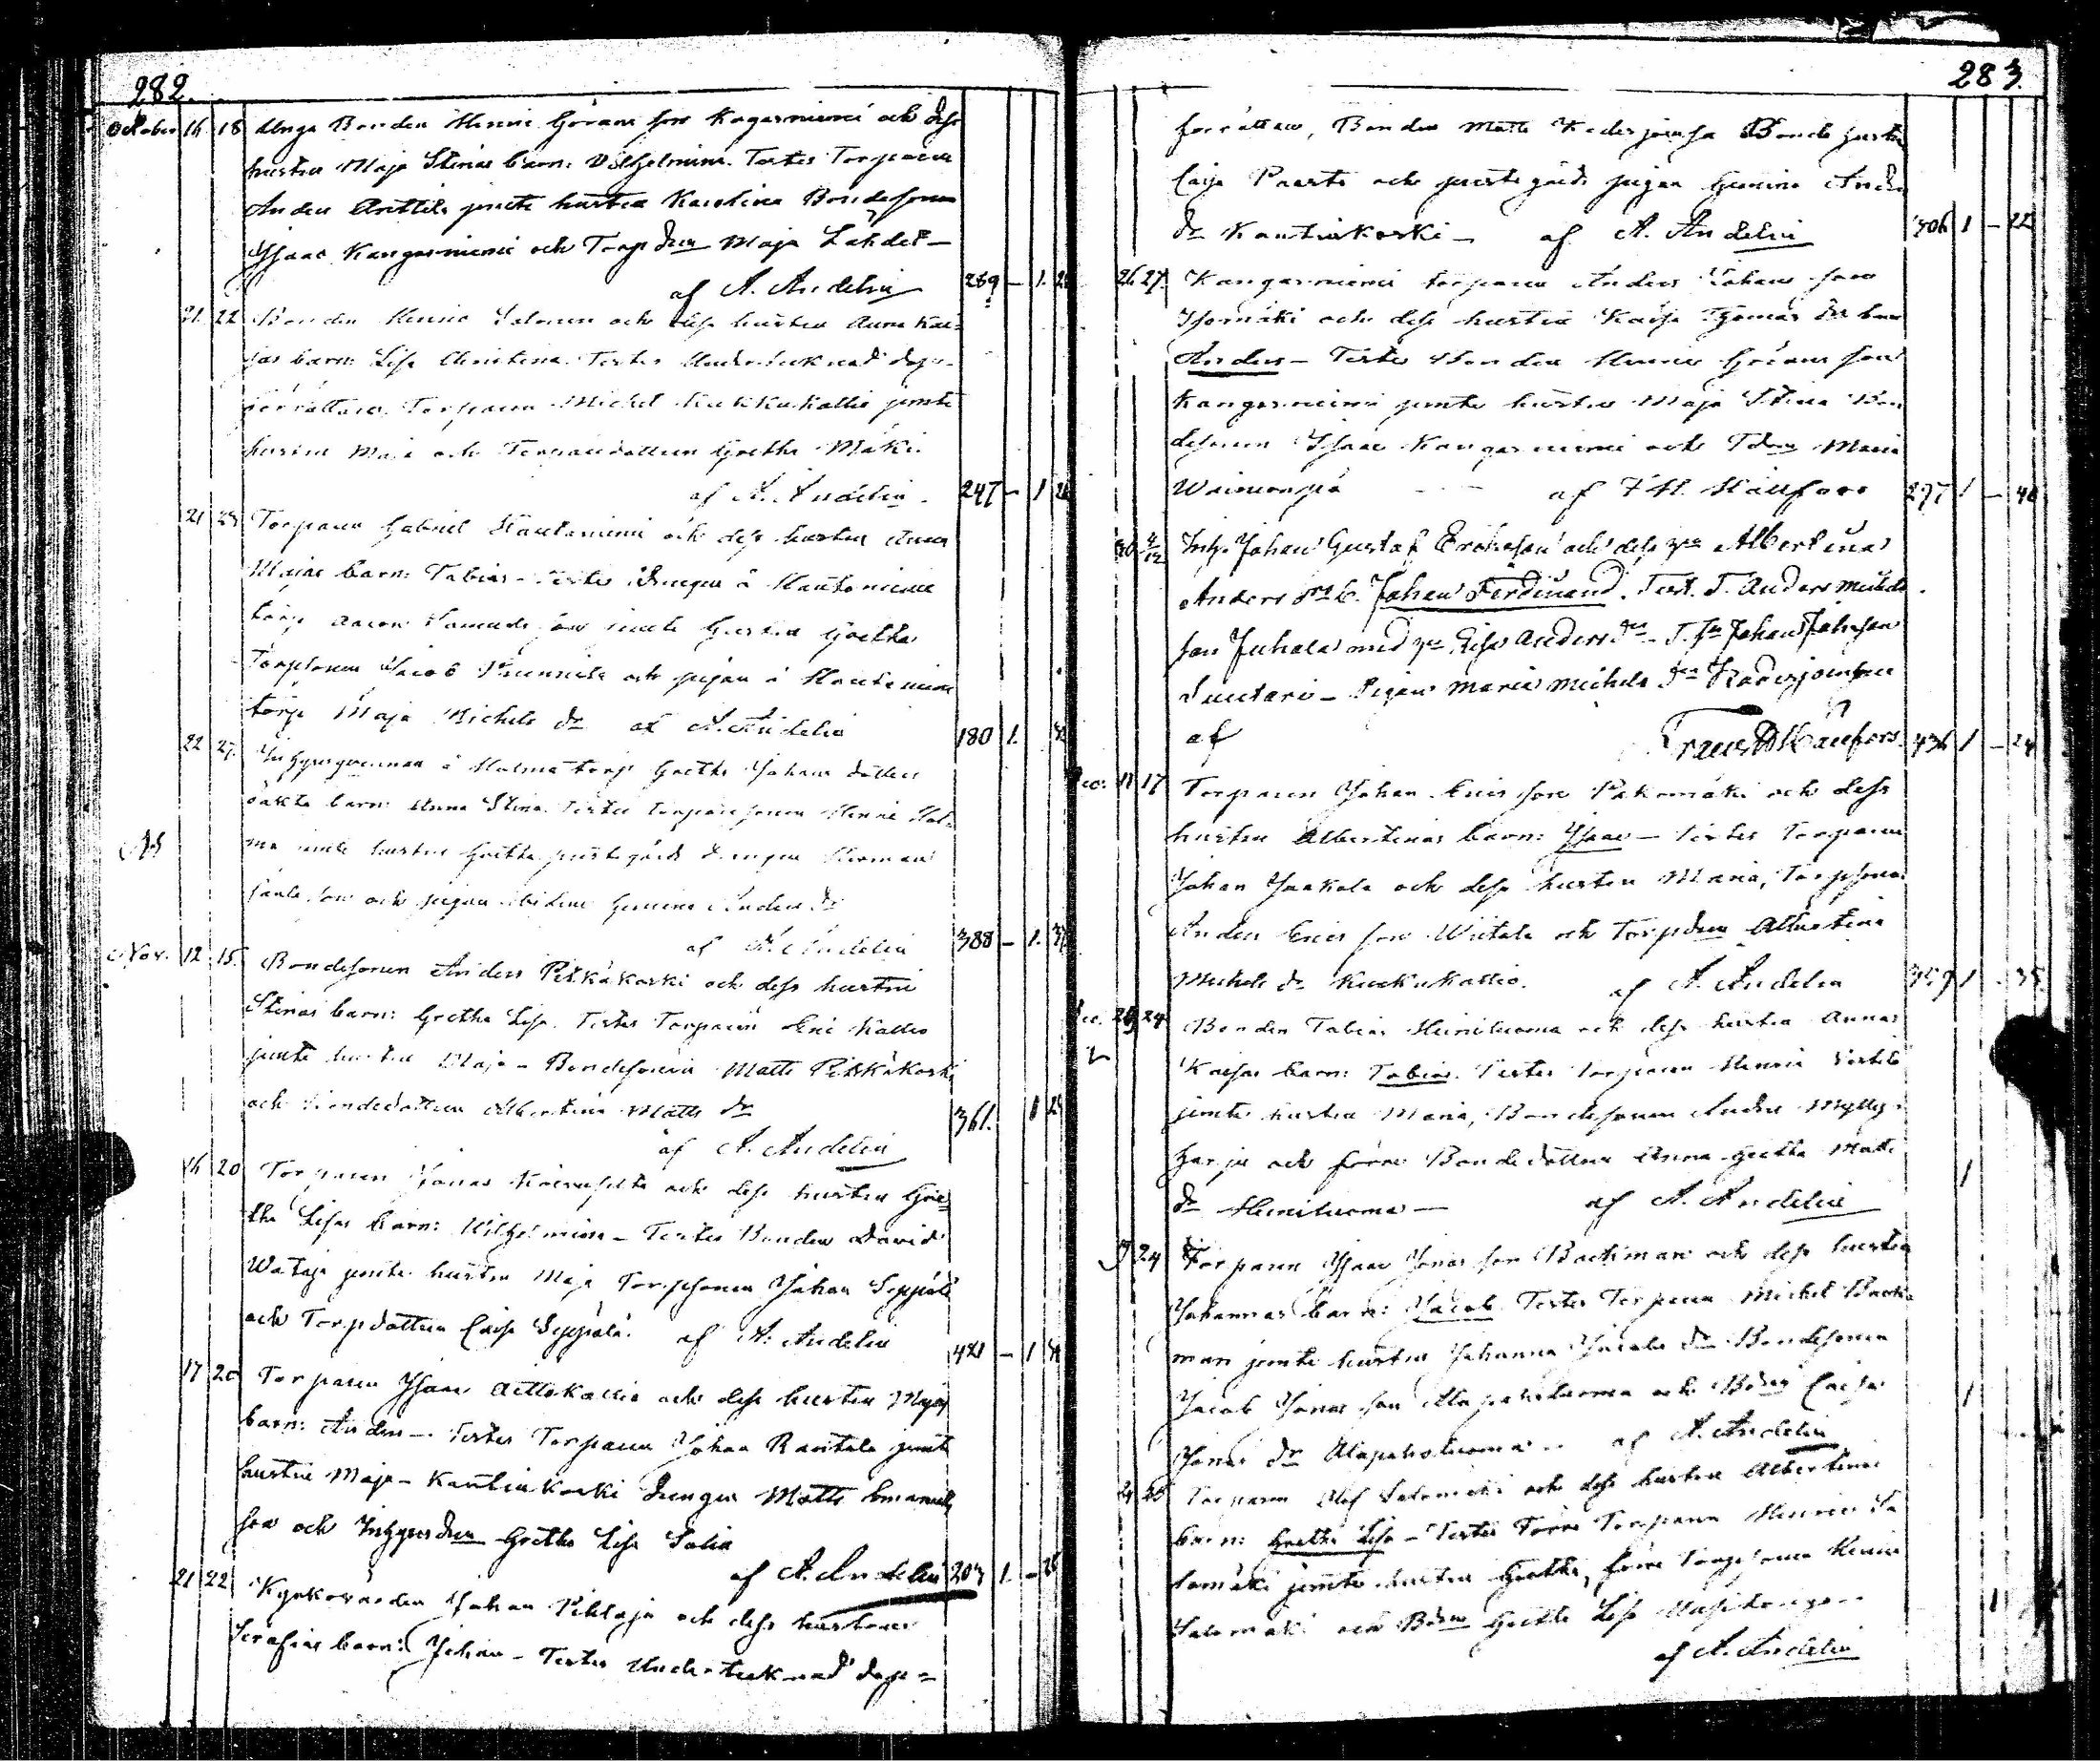 282.
October 16 18 Unga Bonden Henric Görans son Kangasniemi och dess
hustru Maja Stinas barn: Vilhelmina. Testes Torparen
Anders Anttila jemte hustru Karolina Bondesonen
Isaac Kangasniemi och Torpdrn Maja Lahdes-
af A. Andelin 289 - 1.
21. 22 Bonden Henric Salonen och dess hustru Anna Kai-
sas barn: Lisa Christina. Testes Undertecknad dop-
förrättare. Torparen Michel Kukkukallio jemte
hustru Maja och Torparedottren Gretha Mäki.
af A. Andelin. 247 - 1
21 Torparen Gabriel Hautaniemi och dess hustru Anna
Majas barn: Tobias - Testes Drengen å Hautaniemi
torp Aaron Samuels son jemte hustru Gretha
Torpsonen Jacob och pigan å Hautaniemi
torp Maja Michels dr af A. Andelin 180 1.
22 27. Inhysesqvinnan å Holma torp Greta Johans dotters
oäkta barn: Anna Stina. Testes torparesonen Henric Hol-
ma jemte hustru Gretha prestgårds drengen Herman
son och pigan ibidem Anders dr
af A. Andelin 388 - 1. 
Nov. 12 15. Bondesonen Anders Pitkäkoski och dess hustru
Stinas barn: Gretha Lisa. Testes Torparen Eric Kallio
jemte hustru Maja - Bondesonen Matts Pitkäkoski
och Bondedottren Albertina Matts dr 361.
af A. Andelin
16 20 Torparen Jonas och dess hustru Gre-
tha Lisas barn: Vilhelmina - Testes Bonden David
Wataja jemte hustru Maja Torpsonen Johan Seppälä
och Torpdottren Caisa Seppälä. af A. Andelin 421 - 1
17 20 Torparen Isaac Aittokallio och dess hustru Majas
barn: Anders - Testes Torparen Johan Rantala jemte
hustru Maja - Kantinkoski Drengen Matts Emanuels
son och Inhysesdrn Gretha Lisa Salin
af A. Andelin 204 1. -
21 22 Kyrkovärden Johan Pihlaja och dess hustrus
Serafias barn: Johan - Testes Undertecknad dop=
283.
förrättare, Bonden Matts Kaderjoensa Bonde hustru
Caisa Paarte och prestgårds pigan Anders
dr Kantinkoski - af A. Andelin 306 1 - 22
26 27. Kangasniemi torparen Anders Johans son
Isomäki och dess hustru Kaisa Thomas drs barn
Anders - Testes Bonden Henric Görans son
Kangasniemi jemte hustru Maja Stina Bon
desonen Isaac Kangasniemi och Tdrn Maria
Wainionpä - - - af F. H. Häufors 297 1 - 40
30 4/12 Inh. Johan Gustaf Ericsson och dess hu Albertinas
Anders drs b. Johan Ferdinand. Test. T. Anders Michels
son Juhala med hu Lisa Anders dr - T. sn Johan Johansson
Luutari - Pigan Maria Michels dr Kaderjoensuu
af 436 1 - 24
Dec. 11 17 Torparen Johan Erics son Pakomäki och dess
hustru Albertinas barn: Isaac - Testes Torparen
Johan Jaakola och dess hustru Maria, Torpsonen
Anders Erics son Wiitala och Torpdrn Albertina
Michels dr Kuckukallio. af A. Andelin 359 1 - 35
Dec. 24 Bonden Tobias Heiniluoma och dess hustru Annas
Kaisas barn: Tobias. Testes torparen Henric
jemte hustru Maria, Bondesonen Anders Mylly-
harju och förre Bondedottren Anna Gretha Matts
dr Heiniluoma - af A. Andelin 1
19 24 Torparen Isaac Jonas son Backman och dess hustru
Johannas barn: Jacob. Testes Torparen Michel Back-
man jemte hustru Johanna Jacobs dr Bondesonen
Jacob Jonas son Alapaholuoma och Bdrn Caisa 1
Jonas dr Alapaholuoma - af A. Andelin
24 25 Torparen Olof Salomäki och dess hustru Albertinas
barn: Gretha Lisa - Testes Förre Torparen Henric Sa
lomäki jemte hustru Gretha, förre Torpsonen Henric
Salomäki och Bdrn Gretha Lisa 1
af A. Andelin